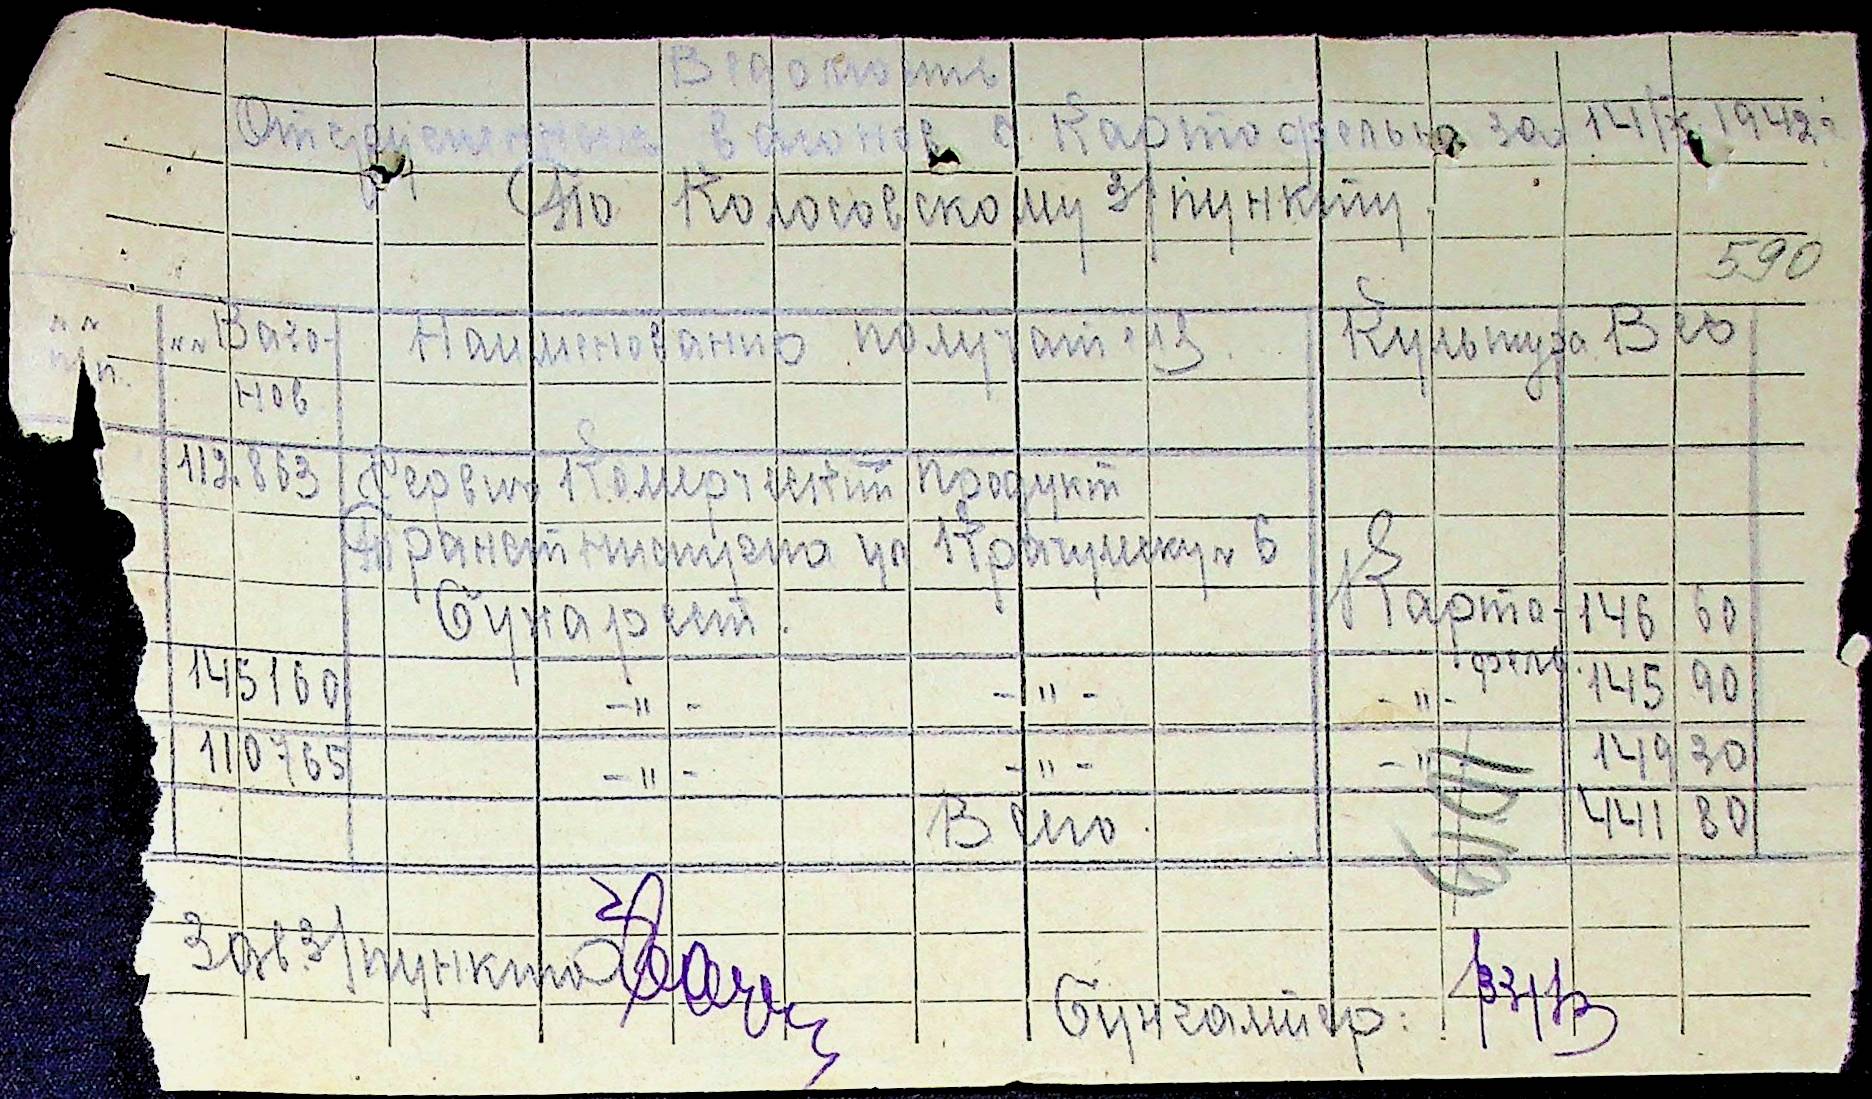 Ведомость
Отгруженных вагонов с Картофелью за 14/X 1942 г
По Колосовскому З/пункту.
590
№№ п/п. №№Ваго- Наименованию получателя Культура Вес
нов
112.863 Сервис Комерческий продукт
Транстнистуена ул Крагулеску № 6
Бухарест. Карто- 146 60
145160 -"- -"- фель. -"- 145 90
110765 -"- -"- -"- 149 30
Всего. 441 80
Зав. З/пункта
Бухгалтер: